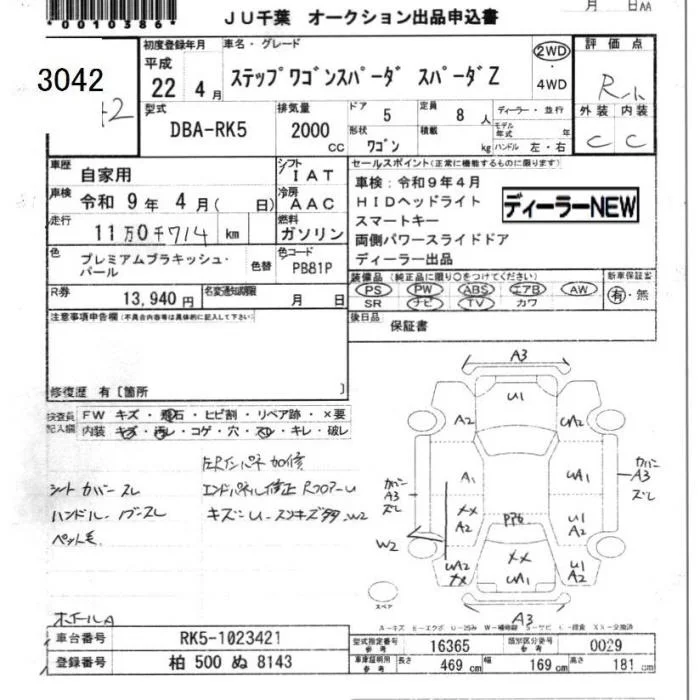 *0010386*
JU千葉 オークション出品申込書
月 日AA
3042
初度登録年月 車名・グレード
2WD
・
4WD
評価点
平成
22 4月
ステップワゴンスパーダ スパーダZ
R
外装 内装
C C
型式
DBA-RK5
排気量
2000 CC
ドア 5
定員 8 人
形状 ワゴン
積載 kg
ディーラー・並行
モデル年式 年
ハンドル 左・右
車歴 自家用
シフト IAT
セールスポイント(正常に機能するものに限ります)
車検 令和 9年 4月( 日)
冷房 AAC
車検:令和9年4月
HIDヘッドライト
スマートキー
両側パワースライドドア
ディーラー出品
ディーラーNEW
走行 11万0千714 km
燃料 ガソリン
色 プレミアムブラキッシュ・パール
色替
色コード PB81P
装備品(純正品に限り○をつけてください)
新車保証書
PS PW ABS エアB AW
SR ナビ TV カワ
有・無
R券 13,940円
名変通知期限 月 日
後日品 保証書
注意事項申告欄(不具合内容等は具体的に記入して下さい)
修復歴 有〔箇所 〕
検査員記入欄
FW キズ・飛石・ヒビ割・リペア跡・×要
内装 キズ・汚レ・コゲ・穴・スレ・キレ・破レ
シートカバースレ
ハンドル、ノブスレ
ペット毛
左Rインパネ加修
エンドパネル修正 RフロアーU
キズ
W2
ホイールA
A3
U1
A2
A1
UA1
カバー
A3
ズレ
カバー
A3
ズレ
XX
A2
U1
A2
W2
UA2
XX
XX
UA1
U1
A2
A3
スペア
A-キズ E-エクボ U-凹み W-補修跡 S-サビ C-腐食 XX-交換済
車台番号 RK5-1023421
型式指定番号 参考 16365
類別区分番号 参考 0029
登録番号 柏 500 ぬ 8143
車庫証明用 参考 長さ 469 cm 幅 169 cm 高さ 181 cm